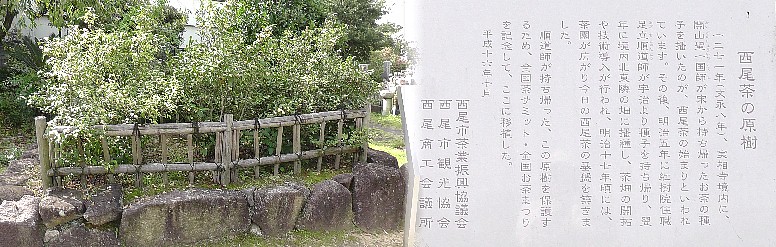 西尾茶の原樹
一二七一年(文永八年)、実相寺境内に、
開山聖一国師が宋から持ち帰ったお茶の種
子を播いたのが、西尾茶の始まりといわれ
ています。その後、明治五年に紅樹院住職
足立順道師が宇治より種子を持ち帰り、翌
年に境内北東隣の畑に播種し、茶畑の開拓
や技術導入が行われ、明治十七年頃には、
茶園が広がり今日の西尾茶の基礎を築きま
した。
順道師が持ち帰った、この原樹を保護す
るため、全国茶サミット・全国お茶まつり
を記念して、ここに移植した。
平成十六年十月
西尾市茶業振興協議会
西尾市観光協会
西尾商工会議所